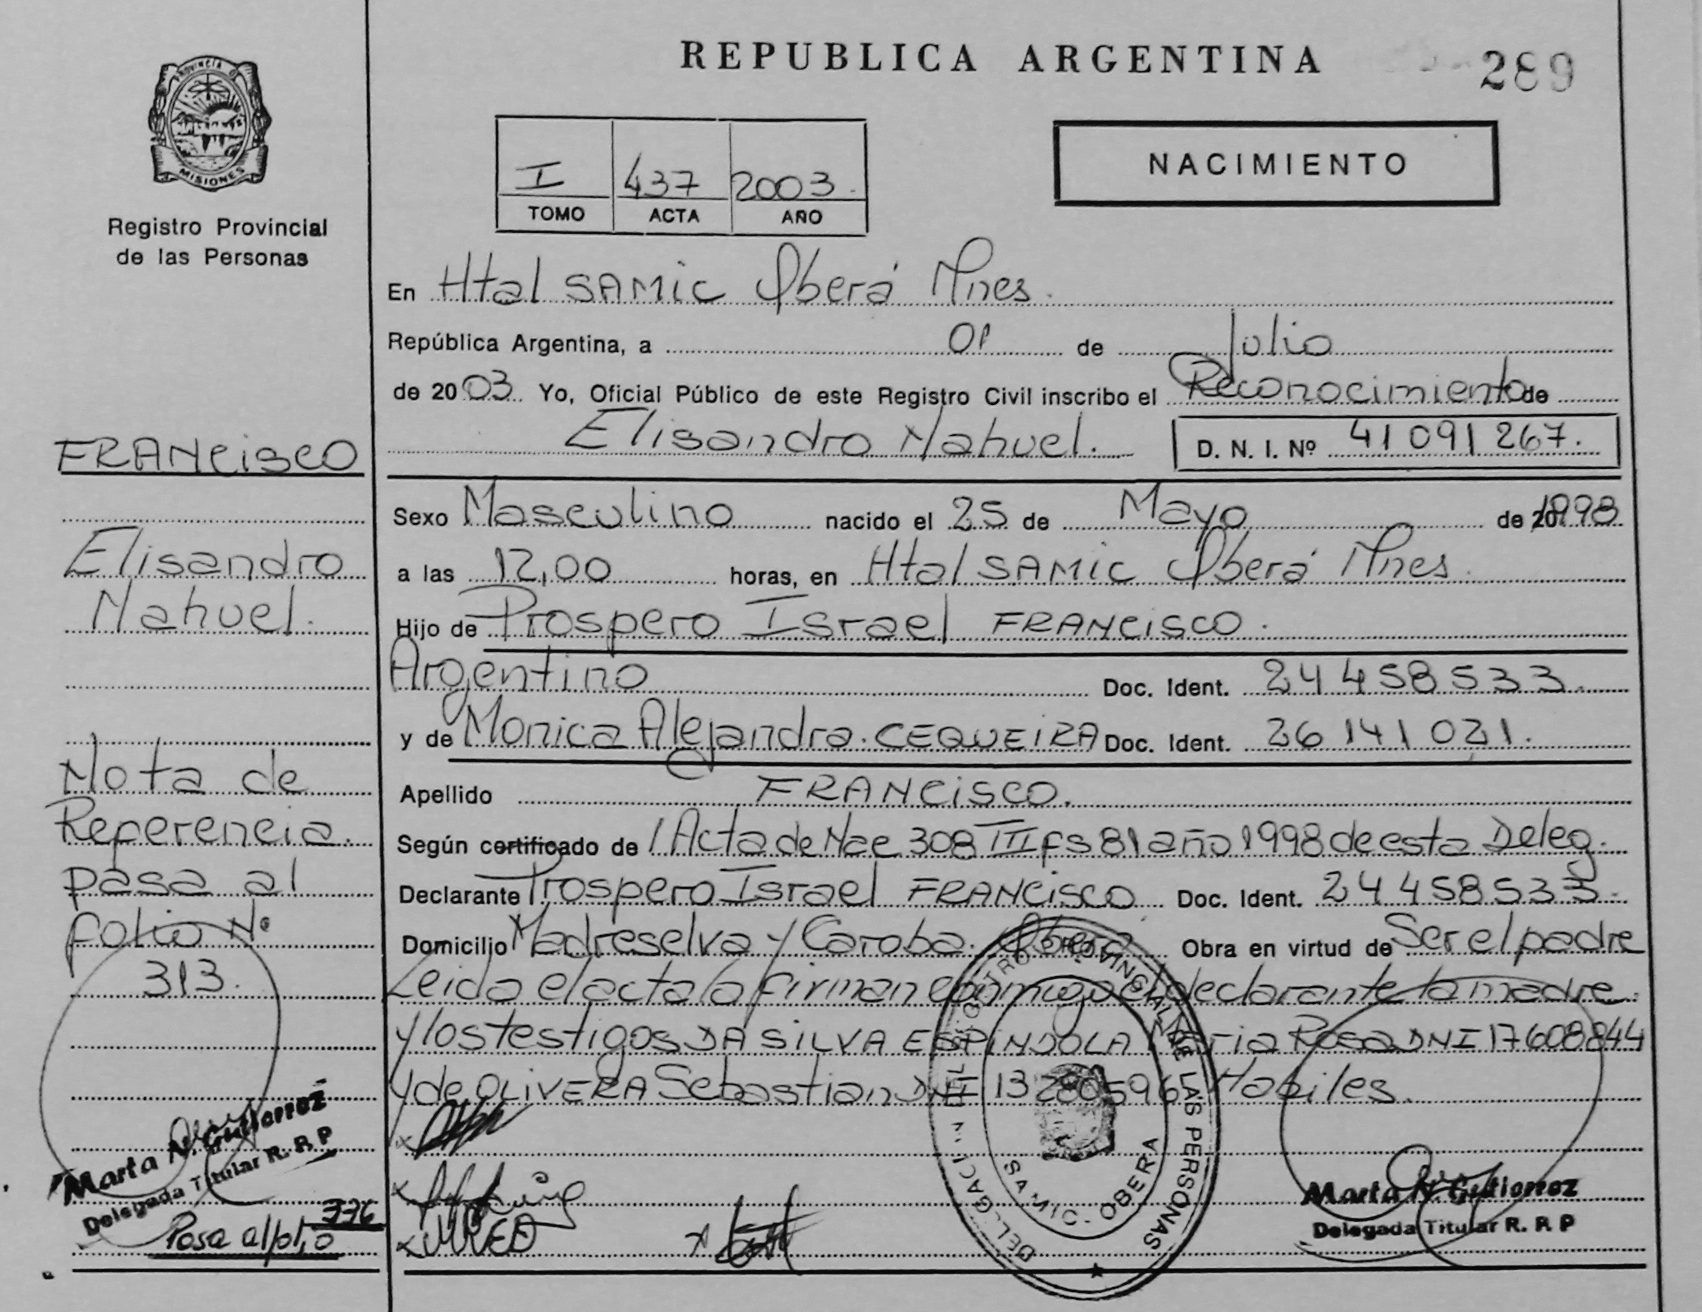 REPUBLICA ARGENTINA
289
PROVINCIA D
MISIONES
Registro Provincial
de las Personas
I 437 2003.
TOMO ACTA AÑO
NACIMIENTO
En Htal SAMIC Oberá Mnes.
República Argentina, a 01 de Julio
de 2003. Yo, Oficial Público de este Registro Civil inscribo el Reconocimiento de
Elisandro Nahuel. D. N. I. Nº 41 091 267.
Sexo Masculino nacido el 25 de Mayo de 1998
a las 12,00 horas, en Htal SAMIC Oberá Mnes.
Hijo de Prospero Israel FRANCISCO.
Argentino Doc. Ident. 24 458 533.
y de Monica Alejandra. CEQUEIRA Doc. Ident. 26 141 021.
Apellido FRANCISCO.
Según certificado de 1 Acta de Nac 308 III fs 81 año 1998 de esta Deleg.
Declarante Prospero Israel FRANCISCO Doc. Ident. 24 458 533.
Domicilio Madreselva y Caroba. Oberá Obra en virtud de Ser el padre
Leida el acta la firman conmigo el declarante la madre
y los testigos DA SILVA ESPINDOLA Maria Rosa DNI 17608844
y de OLIVERA Sebastian DNI 13280596 Habiles.
FRANCISCO
Elisandro
Nahuel.
Nota de
Referencia.
pasa al
folio Nº
313.
Marta N. Gutierrez
Delegada Titular R. R. P
Pasa al folio 376
REGISTRO PROVINCIAL DE LAS PERSONAS
SAMIC - OBERA
Marta N. Gutierrez
Delegada Titular R. R. P